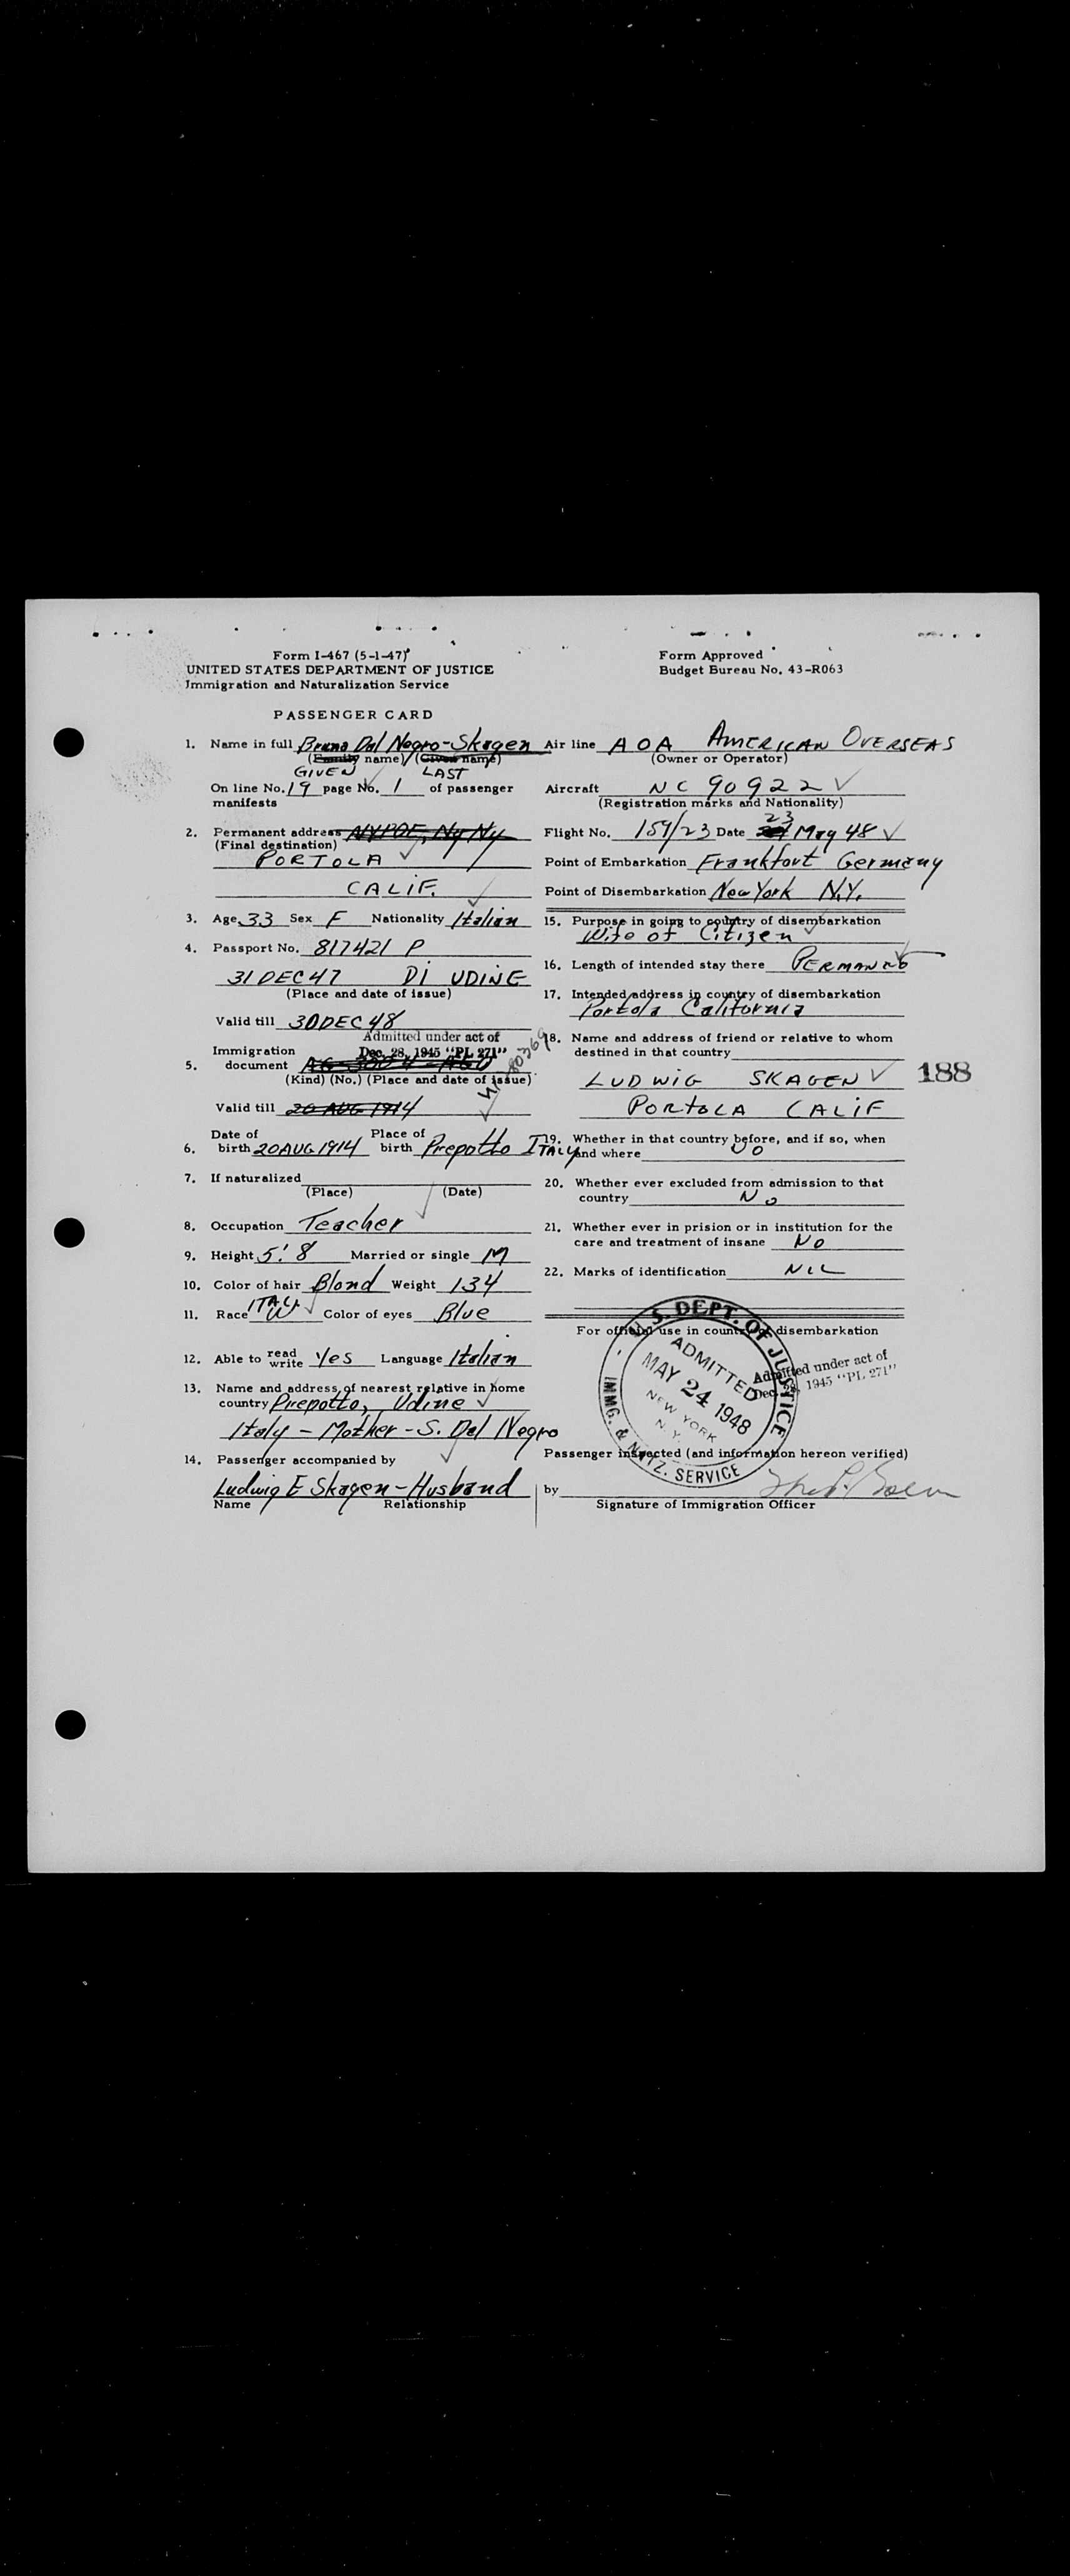 Form I-467 (5-1-47)
UNITED STATES DEPARTMENT OF JUSTICE
Immigration and Naturalization Service
Form Approved
Budget Bureau No. 43-R063
PASSENGER CARD
1. Name in full Bruna Dal Negro-Skagen
(Family name) (Given name)
GIVEN LAST
On line No. 19 page No. 1 of passenger
manifests
2. Permanent address NYPOE, Ny Ny
(Final destination)
PORTOLA
CALIF.
3. Age 33 Sex F Nationality Italian
4. Passport No. 817421 P
31 DEC 47 DI UDINE
(Place and date of issue)
Valid till 30 DEC 48
Admitted under act of
Dec. 28, 1945 "PL 271"
5. Immigration
document
(Kind) (No.) (Place and date of issue)
Valid till 20 AUG 1914
6. Date of birth 20 AUG 1914 Place of birth Prepotto ITALY
7. If naturalized
(Place) (Date)
8. Occupation Teacher
9. Height 5' 8 Married or single M
10. Color of hair Blond Weight 134
11. Race ITAL. W Color of eyes Blue
12. Able to read write Yes Language Italian
13. Name and address of nearest relative in home
country Prepotto, Udine
Italy - Mother - S. Dal Negro
14. Passenger accompanied by
Ludwig E Skagen - Husband
Name Relationship
Air line AOA AMERICAN OVERSEAS
(Owner or Operator)
Aircraft NC 90922
(Registration marks and Nationality)
Flight No. 159/23 Date 23 May 48
Point of Embarkation Frankfort Germany
Point of Disembarkation New York N.Y.
15. Purpose in going to country of disembarkation
Wife of Citizen
16. Length of intended stay there
17. Intended address in country of disembarkation
Portola California
18. Name and address of friend or relative to whom
destined in that country
LUDWIG SKAGEN
PORTOLA CALIF
188
19. Whether in that country before, and if so, when
and where NO
20. Whether ever excluded from admission to that
country No
21. Whether ever in prision or in institution for the
care and treatment of insane NO
22. Marks of identification NIL
For official use in country of disembarkation
U. S. DEPT. OF JUSTICE
ADMITTED
MAY 24 1948
NEW YORK
N. Y.
IMMG. & NATZ. SERVICE
Admitted under act of
Dec. 28, 1945 "PL 271"
Passenger inspected (and information hereon verified)
by
Signature of Immigration Officer